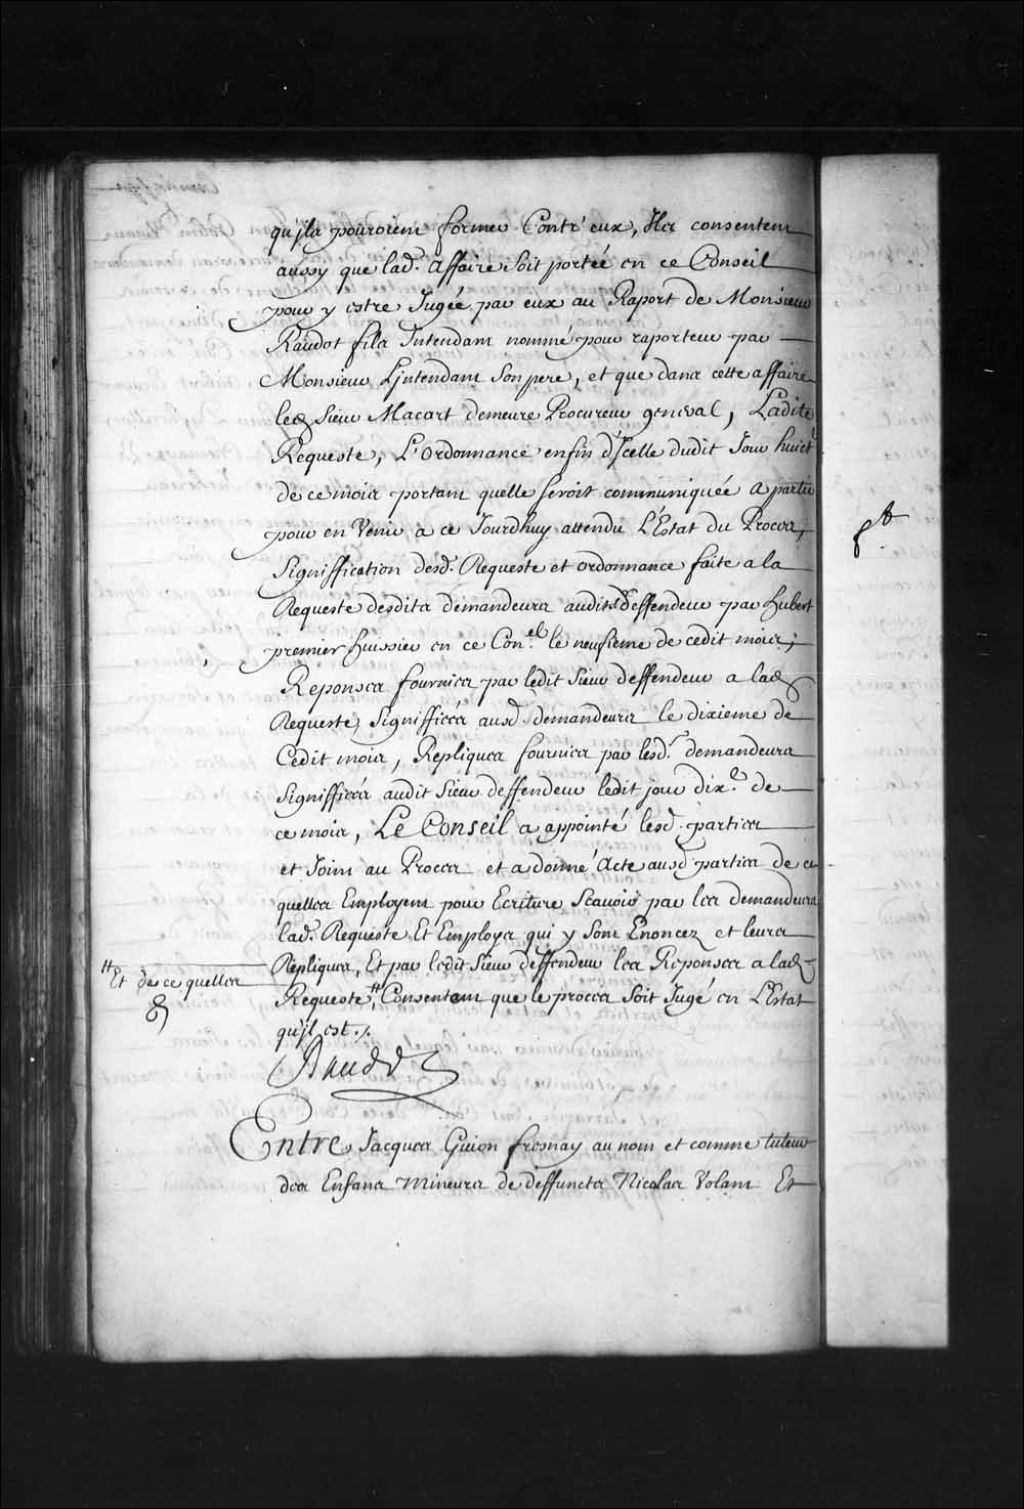 qu'jls pouroient former Contr'eux, Jls consentent
aussy que lad. affaire soit portée en ce Conseil
pour y estre Jugée par eux au Raport de Monsieur
Raudot fils Jntendant nommé pour raporteur par
Monsieur Ljntendant son pere, et que dans cette affaire
led. Sieur Macart demeure Procureur general, Ladite
Requeste, L'ordonnance enfin d'Jcelle dudit Jour huict.
de ce mois portant quelle seroit communiquée a partie
pour en Venir a ce Jourdhuy attendu L'Estat du Procez,
Signiffication desd. Requeste et ordonnance faite a la
Requeste desdits demandeurs audit sr. deffendeur par hubert
premier huissier en ce Con.el le neufieme de cedit mois;
Reponses fournies par ledit Sieur deffendeur a lad.
Requeste, Signiffiées ausd. demandeurs le dixieme de
Cedit mois, Repliques fournies par lesd. demandeurs
Signiffiées audit Sieur deffendeur ledit jour dix.e de
ce mois, Le Conseil a appointé lesd. parties
et Joint au Procez et a donné Acte ausd. parties de ce
quelles Employent pour Ecriture Scauoir par les demandeurs
lad. Requeste Et Employs qui y sont Enoncez et leurs
Repliques, Et par ledit Sieur deffendeur les Reponses a lad.
# Et de ce quelles
Requeste # Consentent que le proces soit Jugé en L'Estat
qu'jl est ./.
Raudot
Entre Jacques Guion fresnay au nom et comme tuteur
des Enfans mineurs de deffuncts Nicolas Volant Et